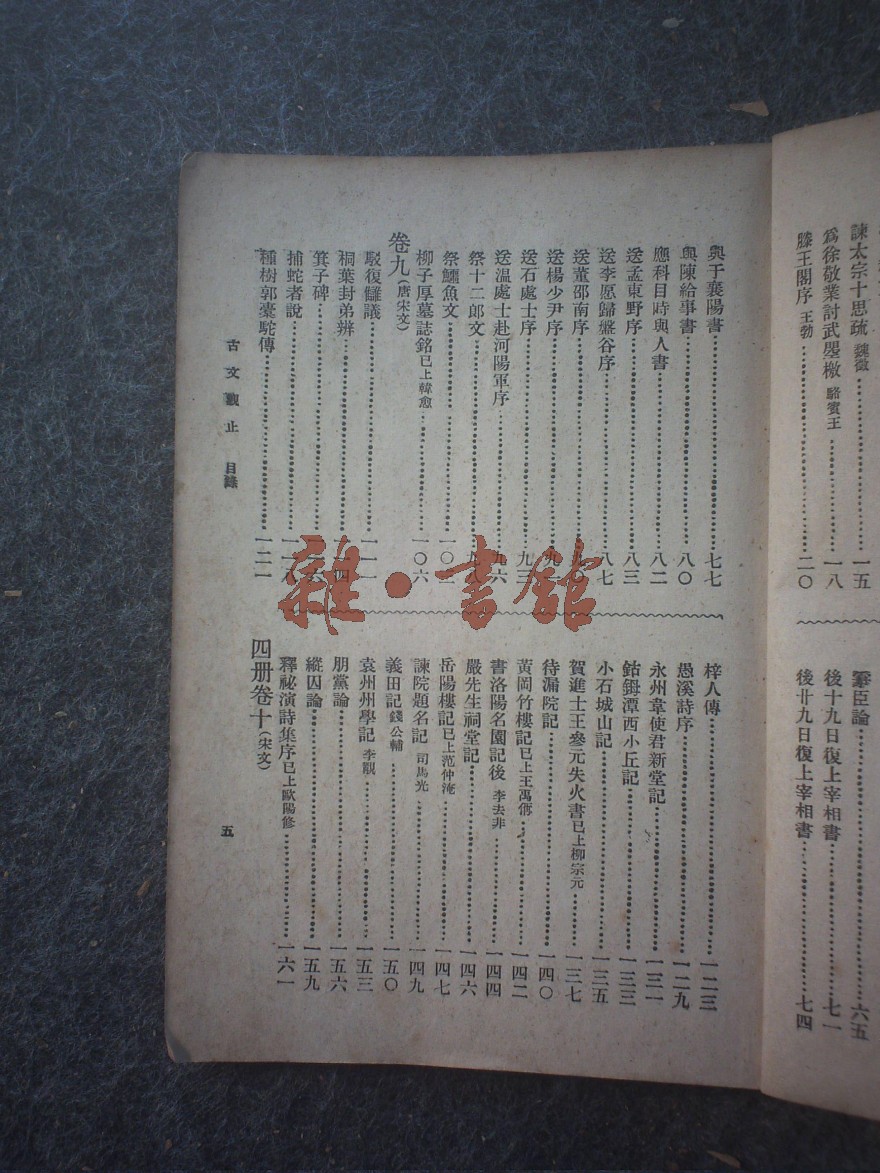 諫太宗十思疏 魏徵……一五
爲徐敬業討武曌檄 駱賓王……一八
滕王閣序 王勃……二〇
臣論……六五
後十九日復上宰相書……七一
後廿九日復上宰相書……七四
與于襄陽書……七七
與陳給事書……八〇
應科目時與人書……八二
送孟東野序……八三
送李愿歸盤谷序……八七
送董邵南序……九〇
送楊少尹序……
送石處士序……九三
送溫處士赴河陽軍序……九六
祭十二郎文……九八
祭鱷魚文……一〇二
柳子厚墓誌銘已上韓愈……一〇六
卷九(唐宋文)
駁復讎議……一一一
桐葉封弟辨……一一四
箕子碑……一一六
捕蛇者說……一一八
種樹郭橐駝傳……一二一
梓人傳……一二三
愚溪詩序……一二九
永州韋使君新堂記……一三一
鈷鉧潭西小丘記……一三三
小石城山記……一三五
賀進士王參元失火書已上柳宗元……一三七
待漏院記……一四〇
黃岡竹樓記已上王禹偁……一四二
書洛陽名園記後 李去非……一四四
嚴先生祠堂記……一四六
岳陽樓記已上范仲淹……一四七
諫院題名記 司馬光……一四九
義田記 錢公輔……一五〇
袁州州學記 李覯……一五三
朋黨論……一五六
縱囚論……一五九
釋祕演詩集序已上歐陽修……一六一
四册卷十(宋文)
古文觀止 目錄
五
雜·書館